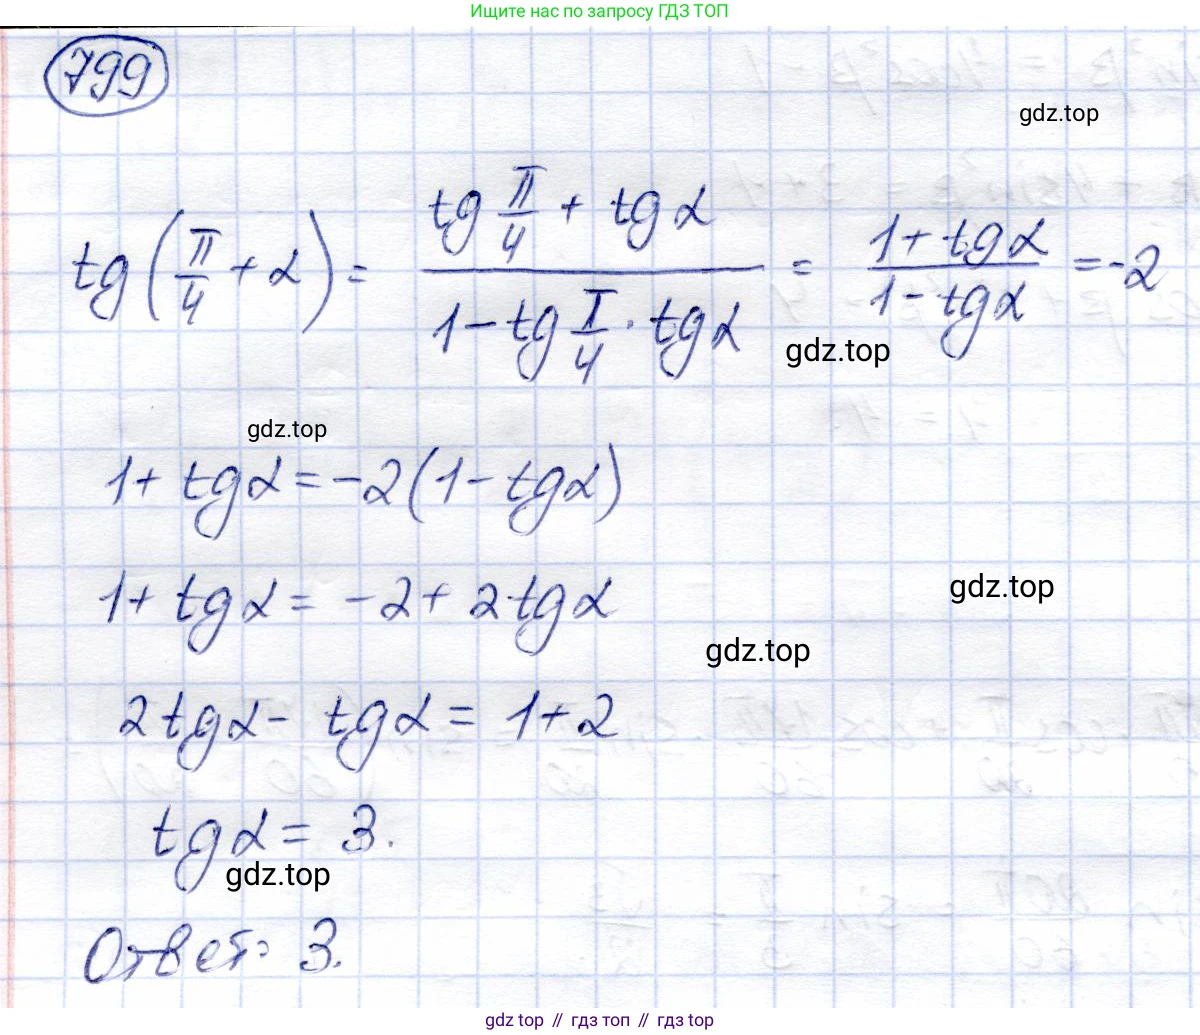 Ищите нас по запросу ГДЗ ТОП
799
gdz.top
tg(π/4 + α) = (tg π/4 + tg α)/(1 - tg π/4 · tg α) = (1 + tg α)/(1 - tg α) = -2
gdz.top
gdz.top
1 + tg α = -2(1 - tg α)
1 + tg α = -2 + 2tg α
gdz.top
gdz.top
2tg α - tg α = 1 + 2
tg α = 3.
gdz.top
Ответ: 3.
gdz top // гдз топ // гдз top